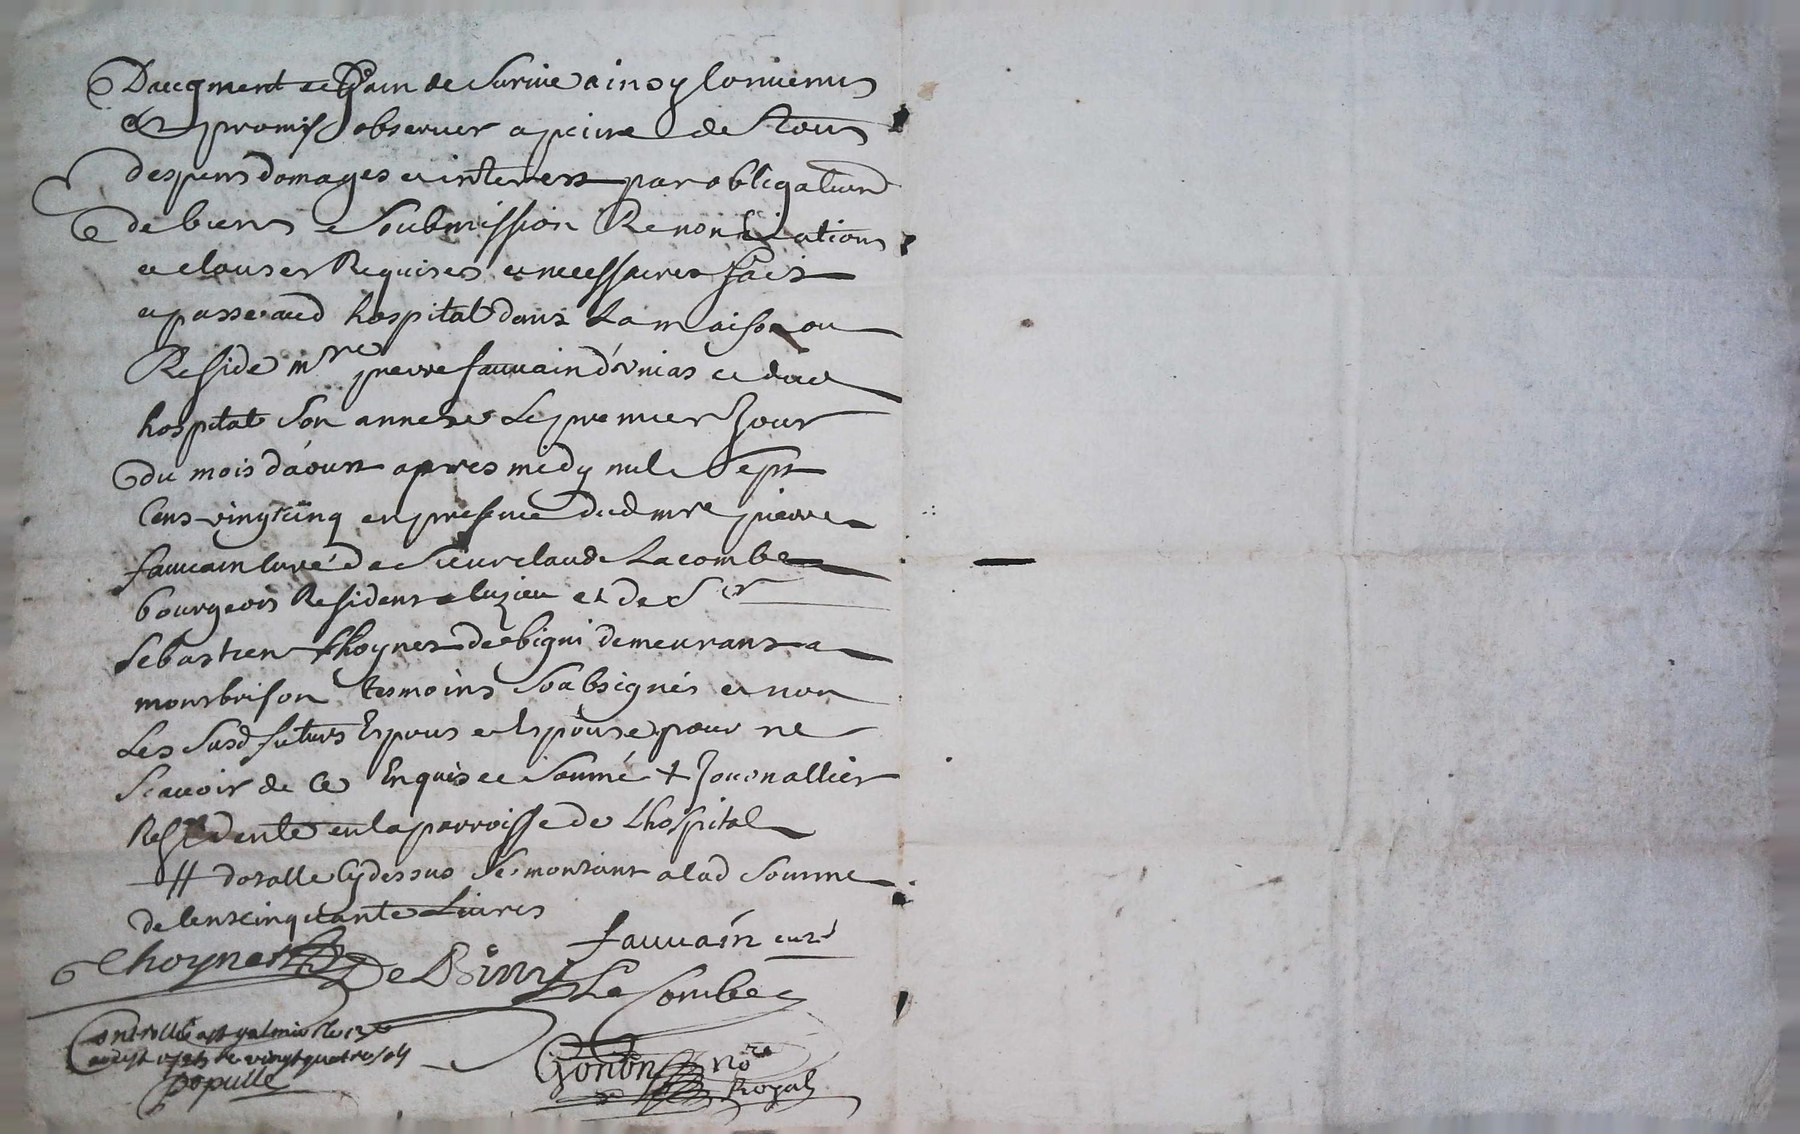 Daugment et Gain de Survie ainsy Convenus
Et promis observer a peine de Tous
despens domages et interest par obligation
de biens Soubmission Renonciations
et clauses Requises et necessaires fait
et passe aud hospital dans La maison ou
Reside mre pierre fauvain d'unias et dud
hospital Son annexe Le premier Jour
du mois d'aoust apres midy mil Sept
Cens vingtcinq en presence dud mre pierre
fauvain Curé de Sieur claude Lacombe
bourgeois Resident a luzieu et de Sr
Sebastien Choynet de bigni demeurant a
montbrison tesmoins Soubsignés et non
Les Susd futurs Espous et Espouse pour ne
Scavoir de Ce Enquis et Sommé + Journallier
Residente en la parroisse de Lhospital
# dotalle Cy dessus Se montant a lad Somme
de Cent cinquante Livres
fauvain curé
Choynet De Bigny
La Combe
Controllé a st galmier le 13e
aoust 1725 Re vingt quatre sols
populle
Gonon Nore
Royal